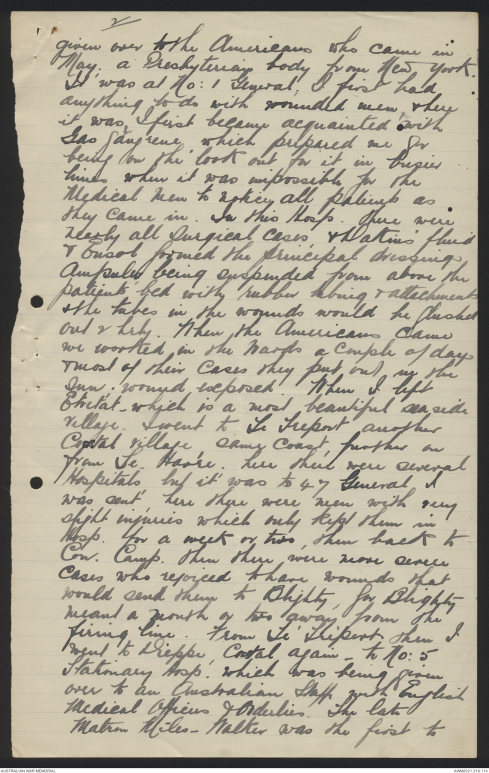 2
given over to the Americans who came in
May. a Presbyterian body from New York.
It was at No: 1 General, I first had
anything to do with wounded men, & here
it was, I first became acquainted with
Gas Gangrene, which prepared me for
being on the look out for it in busier
times when it was impossible for the
Medical Men to notice all patients as
they came in. In this Hosp. there were
nearly all Surgical cases, & Dakins fluid
& Eusol formed the principal dressings
Ampules being suspended from above the
patients bed with rubber tubing & attachments
& the tubes in the wounds would be flushed
out 2 hrly. When the Americans came
we worked in the Wards a couple of days
& most of their cases they put out in the
Sun. wound exposed. When I left
Etretat which is a most beautiful seaside
village. I went to Le Treport another
Coastal village same coast, further on
from Le. Havre. here there were several
Hospitals but it was to 47 General I
was sent, here there were men with very
slight injuries which only kept them in
Hosp. for a week or two, then back to
Con. Camp. then there were more severe
cases who rejoiced to have wounds that
would send them to Blighty, for Blighty
meant a month or two away from the
firing line. From Le Treport then I
went to Dieppe Coastal again - to No: 5
Stationary Hosp. which was being given
over to an Australian Staff with English
Medical Officers & Orderlies. The late
Matron Miles-Walker was the first to
AUSTRALIAN WAR MEMORIAL